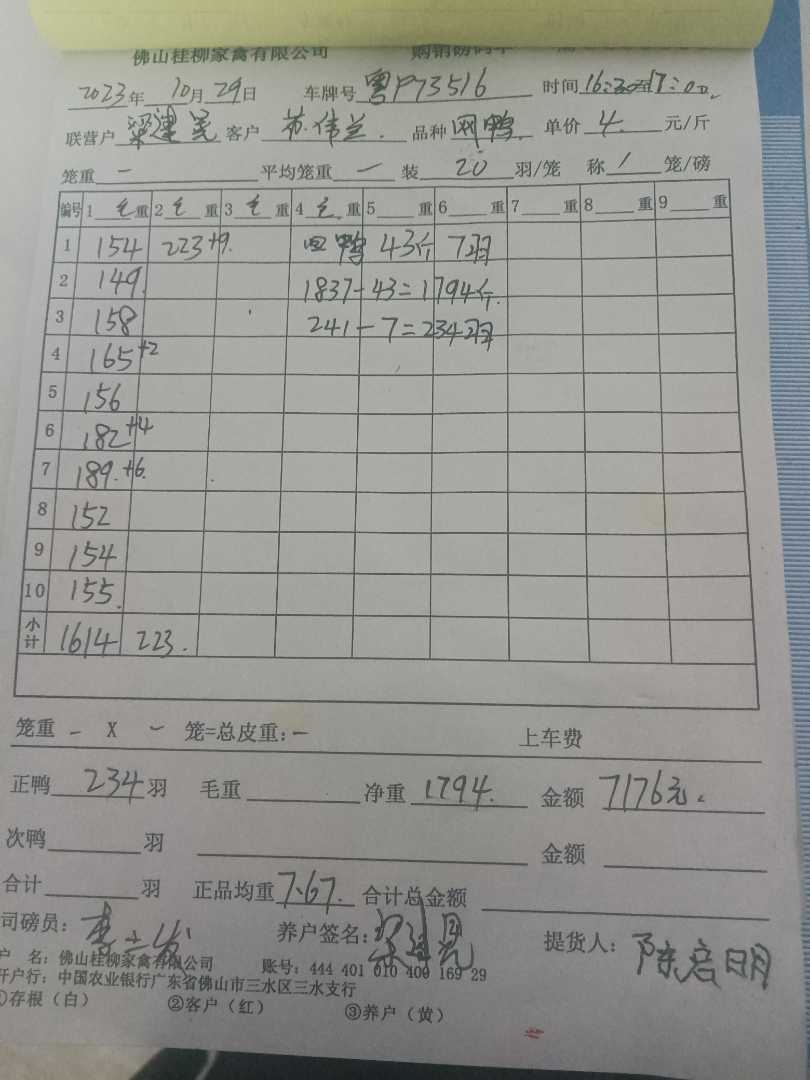 佛山桂柳家禽有限公司
2023年 10月29日 车牌号 粤P73516 时间16:30至17:00.
联营户 梁建 客户 苏伟兰. 品种 网鸭. 单价 4. 元/斤
笼重 - 平均笼重 - 装 20 羽/笼 称 1 笼/磅
编号 1 毛重 2 毛重 3 毛重 4 毛重 5 重 6 重 7 重 8 重 9 重
1 154 223+9. 回鸭 43斤 7羽
2 149. 1837-43=1794斤.
3 158 241-7=234羽
4 165+2
5 156
6 182+4
7 189.+6.
8 152
9 154
10 155.
小计 1614 223.
笼重 - X - 笼=总皮重:- 上车费
正鸭 234 羽 毛重 净重 1794. 金额 7176元.
次鸭 羽 金额
合计 羽 正品均重 7.67. 合计总金额
司磅员: 养户签名: 梁建 提货人: 陈启明
户 名: 佛山桂柳家禽有限公司 账号: 444 401 010 400 169 29
开户行: 中国农业银行广东省佛山市三水区三水支行
①存根（白） ②客户（红） ③养户（黄）